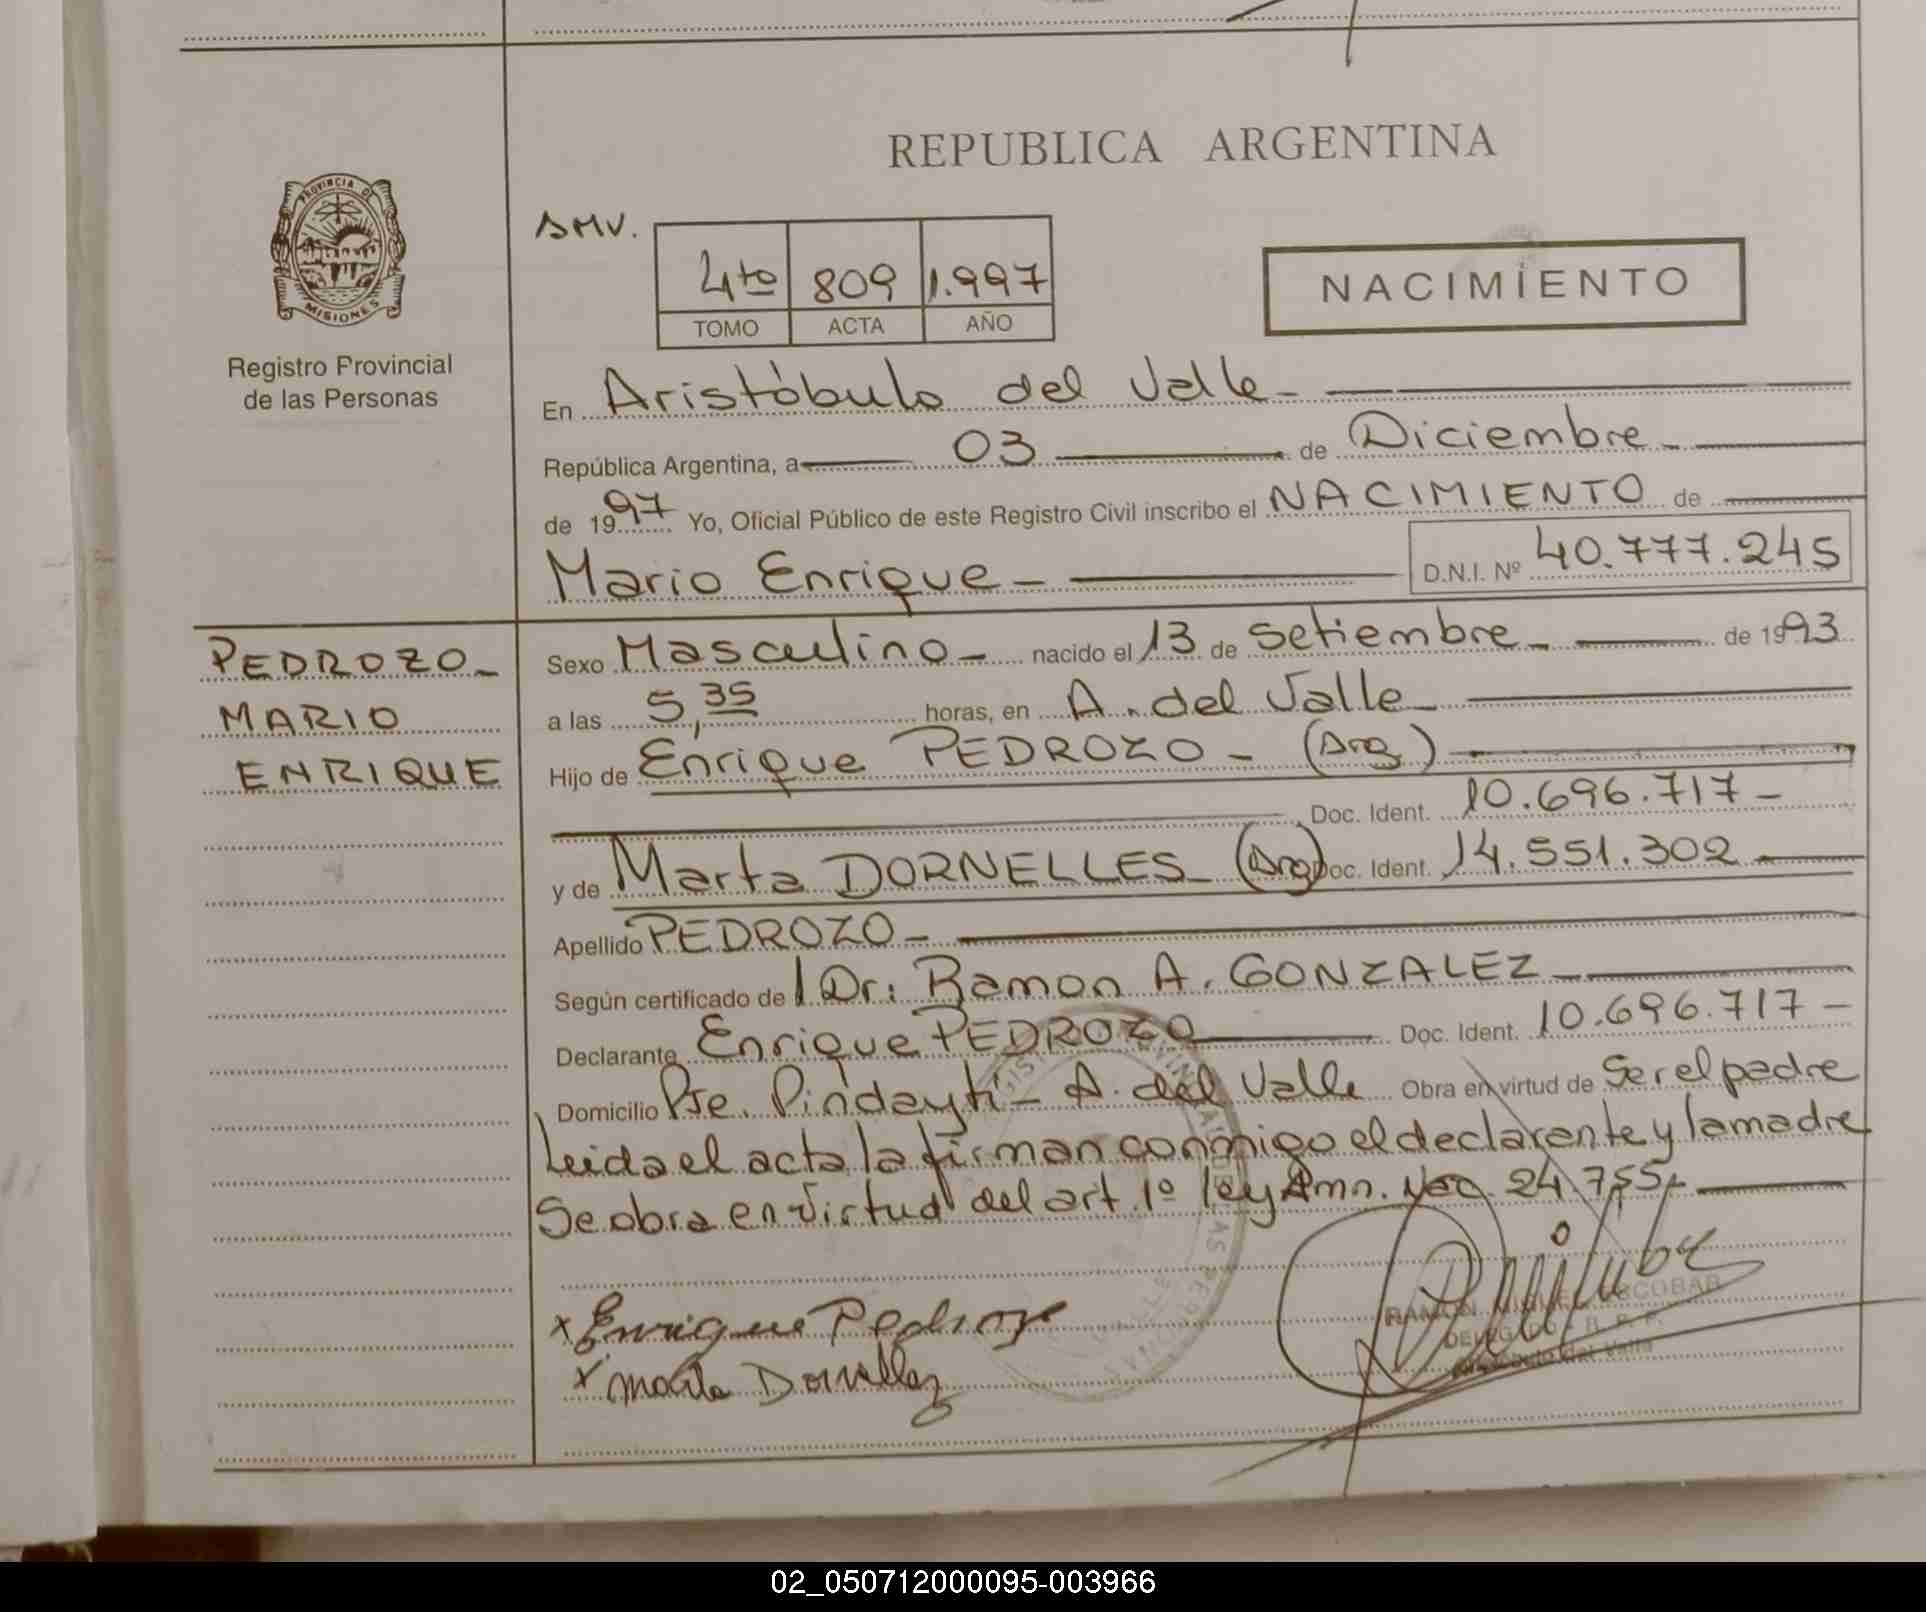 REPUBLICA ARGENTINA
PROVINCIA DE
MISIONES
Registro Provincial
de las Personas
AMV.
4to 809 1.997
TOMO ACTA AÑO
NACIMIENTO
En Aristóbulo del Valle -
República Argentina, a 03 de Diciembre -
de 1997 Yo, Oficial Público de este Registro Civil inscribo el NACIMIENTO de
Mario Enrique - D.N.I. Nº 40.777.245
PEDROZO -
MARIO
ENRIQUE
Sexo Masculino - nacido el 13 de Setiembre - de 1993
a las 5,35 horas, en A. del Valle -
Hijo de Enrique PEDROZO - (Arg)
Doc. Ident. 10.696.717 -
y de Marta DORNELLES - (Arg) Doc. Ident. 14.551.302 -
Apellido PEDROZO -
Según certificado de l Dr: Ramon A. GONZALEZ -
Declarante Enrique PEDROZO Doc. Ident. 10.696.717 -
Domicilio Pje. Pindaytí - A. del Valle Obra en virtud de Ser el padre
Leida el acta la firman conmigo el declarante y la madre
Se obra en virtud del art. 1º ley Amn. Nac. 24.755 -
x Enrique Pedrozo
x Marta Dornellez
RAMON MIGUEL ESCOBAR
DELEGADO - R. P. P.
Aristóbulo del Valle
02_050712000095-003966